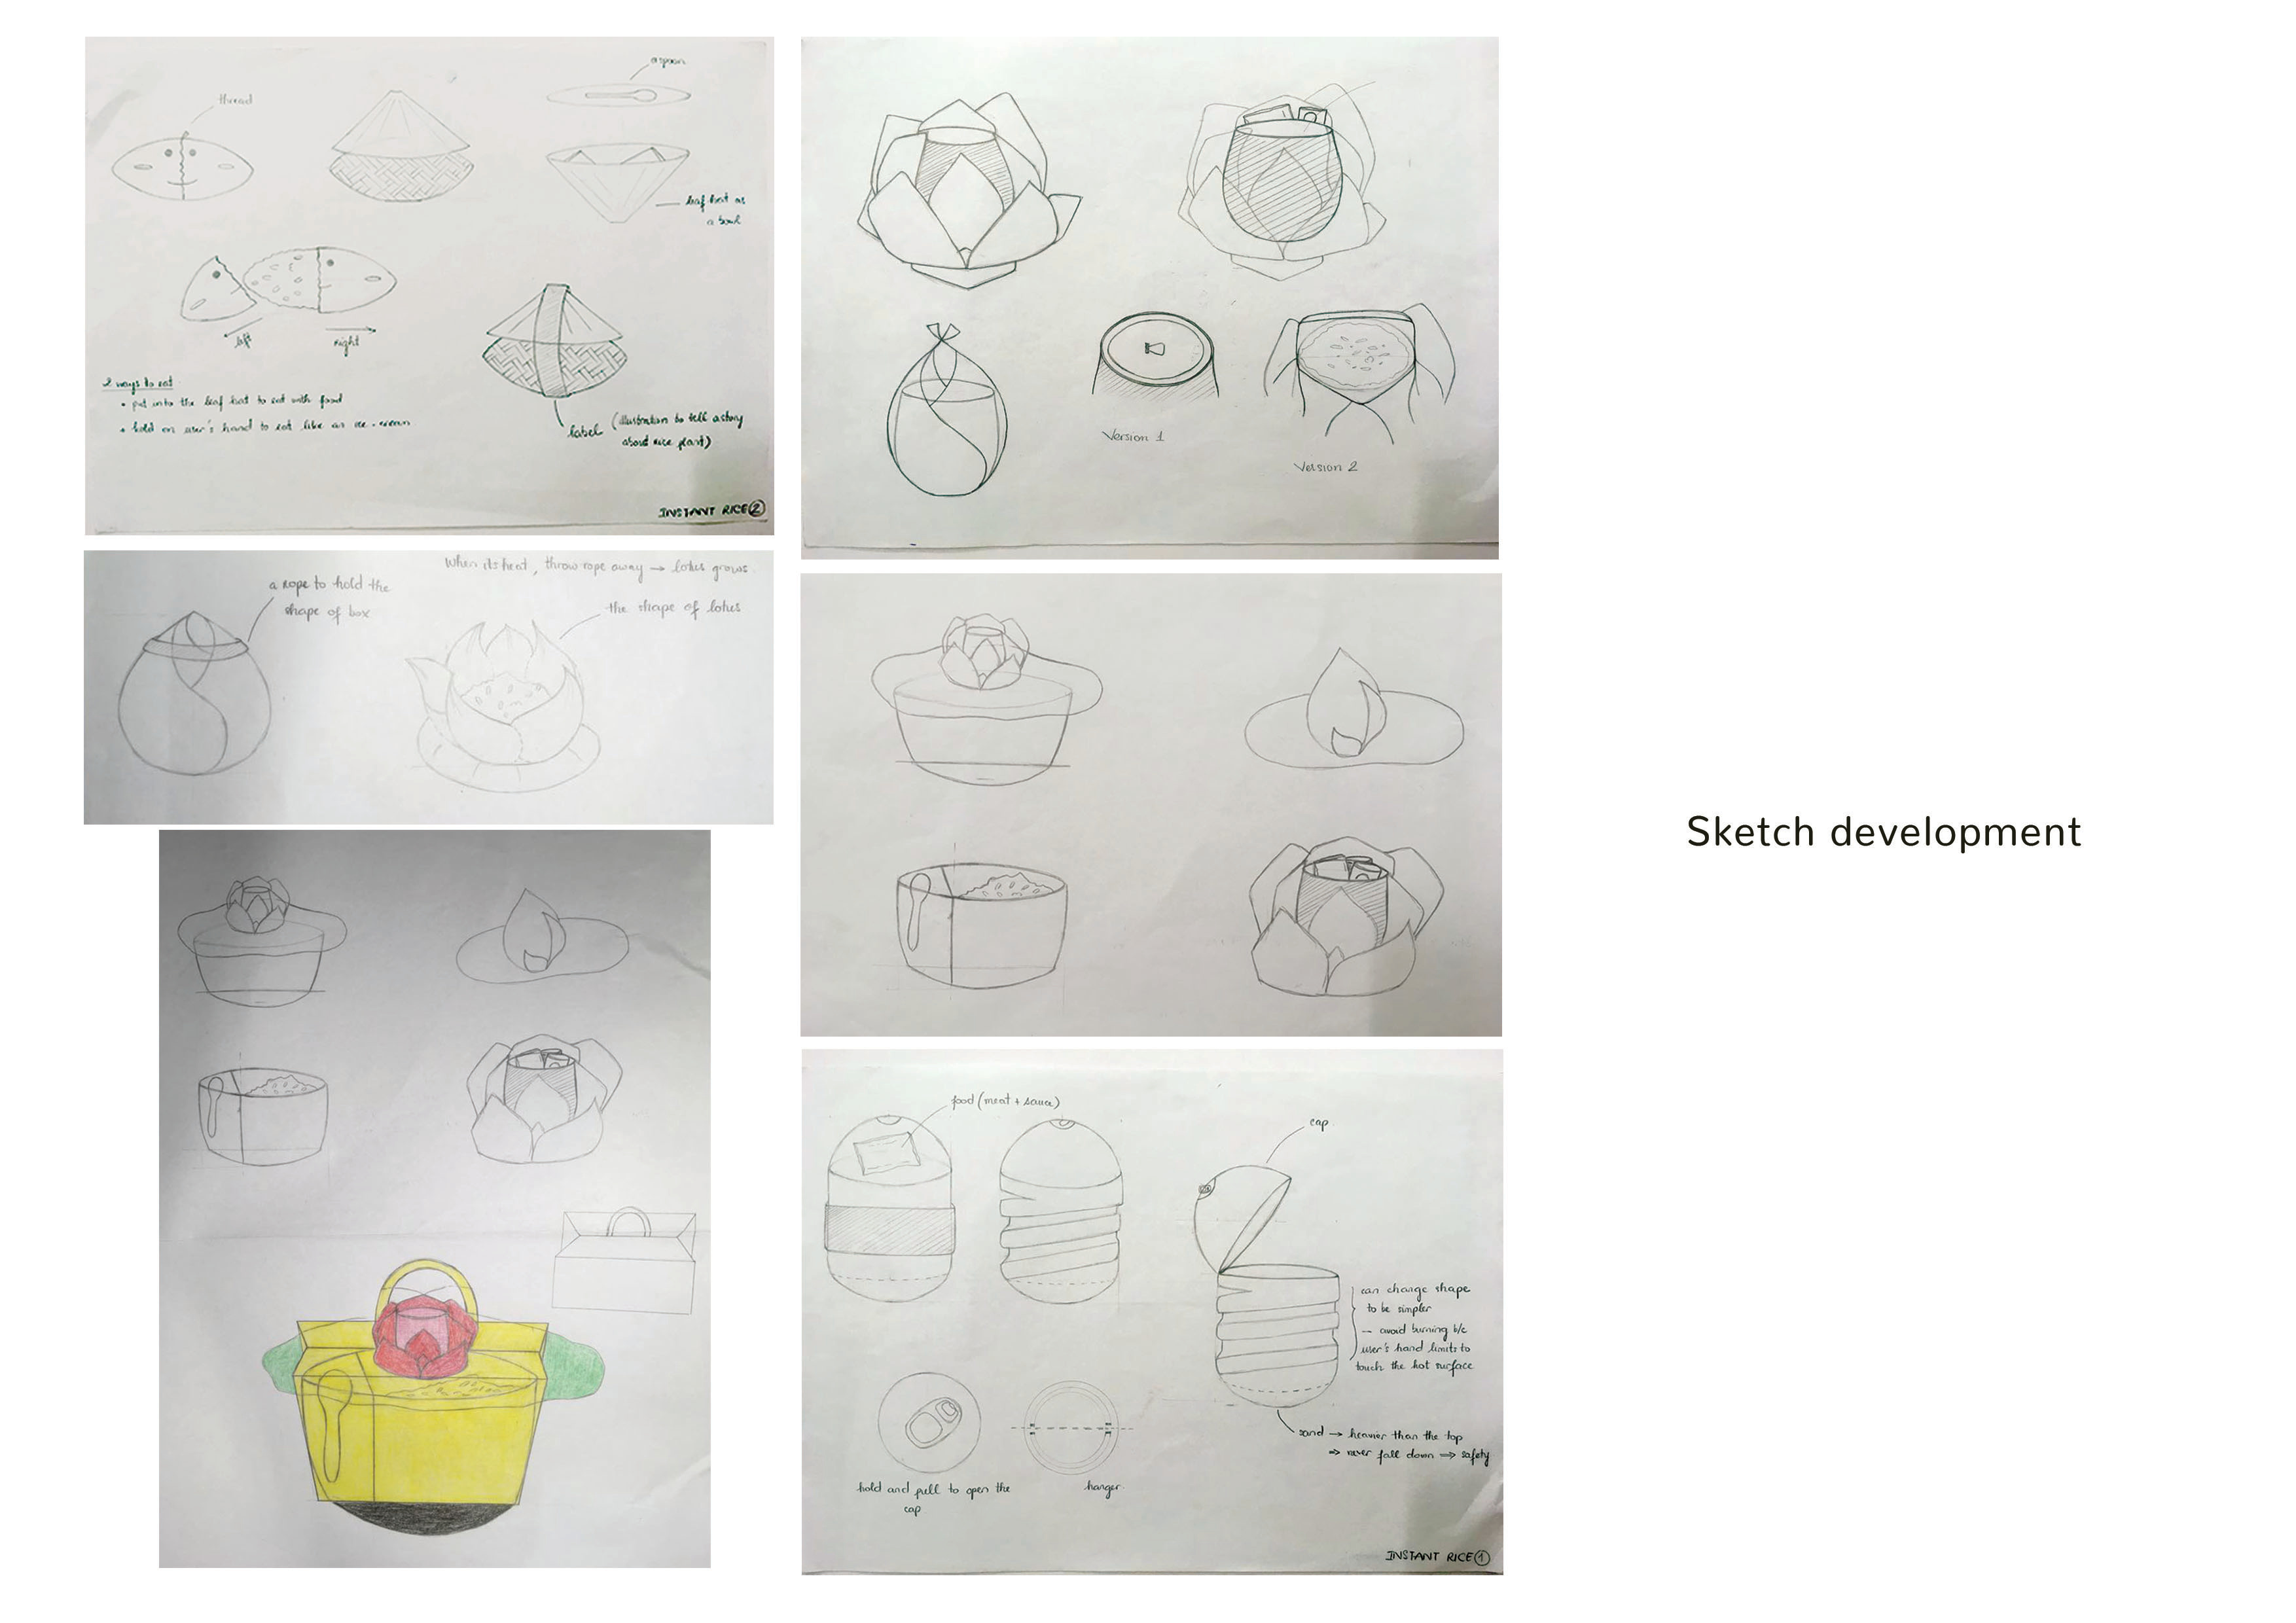 thread
a spoon
leaf hat as
a bowl
left
right
2 ways to eat
• put into the leaf hat to eat with food
• hold on user's hand to eat like an ice-cream
label (illustration to tell a story
about rice plant)
INSTANT RICE 2
When its heat, throw rope away → lotus grows.
a rope to hold the
shape of box
the shape of lotus
Version 1
Version 2
food (meat + sauce)
cap
can change shape
to be simpler
→ avoid burning b/c
user's hand limits to
touch the hot surface
sand → heavier than the top
⇒ never fall down ⇒ safety
hold and pull to open the
cap
hanger
INSTANT RICE 1
Sketch development